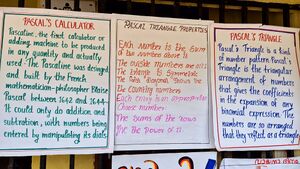 PASCAL'S CALCULATOR
Pascaline, the first calculator or
adding machine to be produced
in any quantity and actually
used. The Pascaline was designed
and built by the French
mathematician-philosopher Blaise
Pascal between 1642 and 1644.
It could only do addition and
subtration, with numbers being
entered by manipulating its dials
PASCAL TRIANGLE PROPERTIES
Each number is the sum
of the two number above it
The outside numbers are all 1
The triangle is Symmetric
The first diagonal shows the
the counting numbers
Each entry is an appropriate
Choose number
The sums of the rows
the power of 11
PASCAL'S TRIANGLE
Pascal's Triangle is a kind
of number pattern Pascal's
Triangle is the triangular
arrangement of numbers
that gives the coefficients
in the expansion of any
binomial expression. The
numbers are so arranged
that they reflect as a triangle